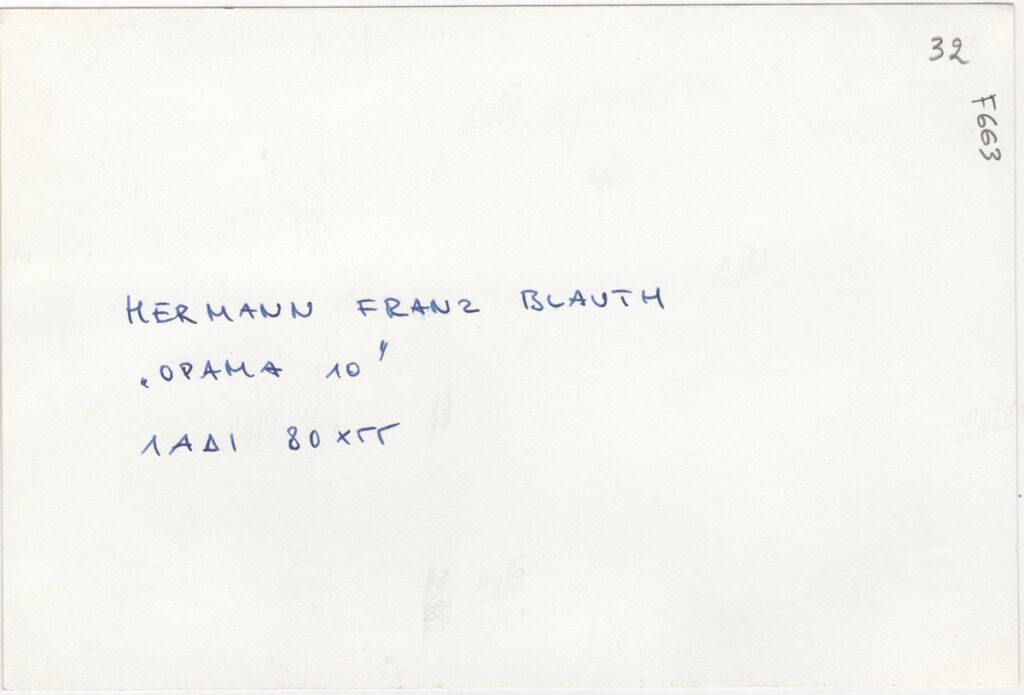 32
F663
HERMANN FRANZ BLAUTH
„ΟΡΑΜΑ 10"
ΛΑΔΙ 80x55